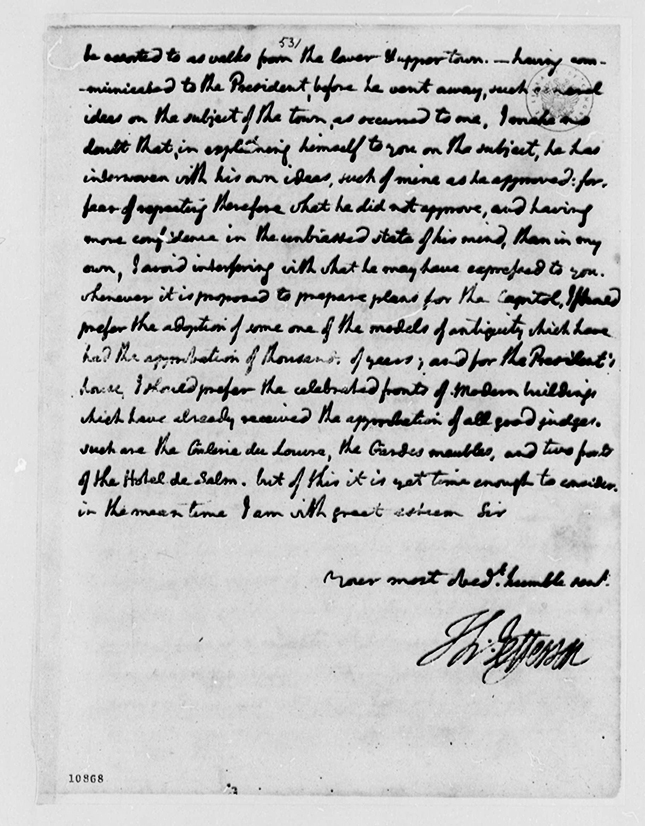 53/
be resorted to as walks from the lower & upper town. — having com-
-municated to the President, before he went away, such general
ideas on the subject of the town, as occurred to me, I make no
doubt that, in explaining himself to you on the subject, he has
interwoven with his own ideas, such of mine as he approved: for
fear of repeating therefore what he did not approve, and having
more confidence in the unbiassed state of his mind, than in my
own, I avoid interfering with what he may have expressed to you.
whenever it is proposed to prepare plans for the Capitol, I should
prefer the adoption of some one of the models of antiquity which have
had the approbation of thousands of years; and for the President's
house, I should prefer the celebrated fronts of Modern buildings
which have already received the approbation of all good judges.
such are the Galerie du Louvre, the Gardes meubles, and two fronts
of the Hotel de Salm. but of this it is yet time enough to consider.
in the mean time I am with great esteem Sir
Your most obed.t humble serv.t
Th: Jefferson
10868